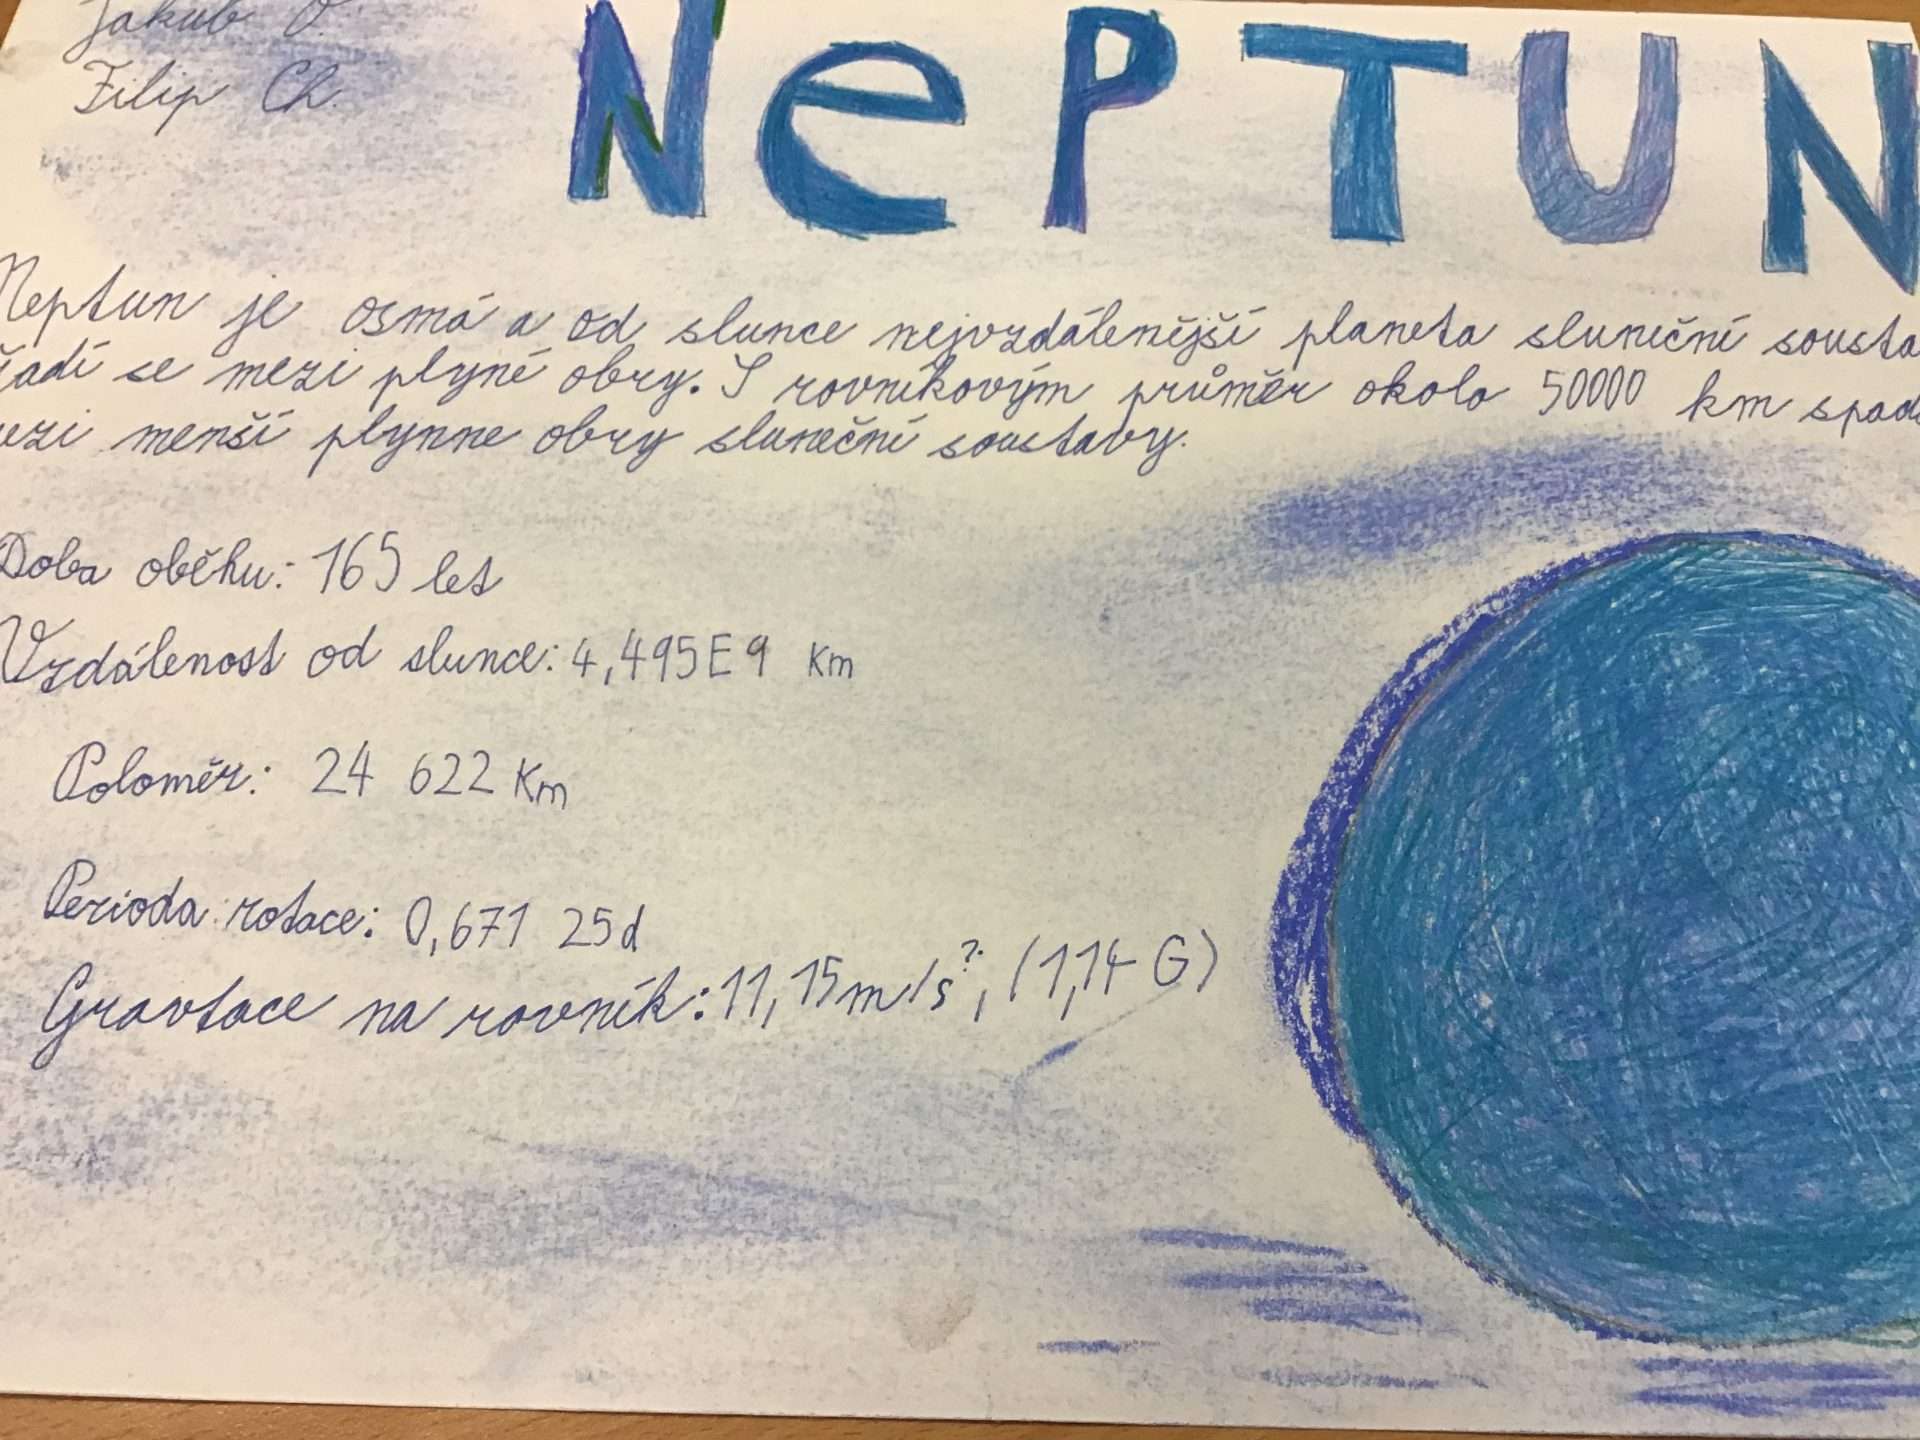 Jakub O.
Filip Ch.
NePTUN
Neptun je osmá a od slunce nejvzdálenější planeta sluneční sousta
řadí se mezi plyné obry. S rovníkovým průměr okolo 50000 km spad
mezi menší plynne obry sluneční soustavy.
Doba oběhu: 165 let
Vzdálenost od slunce: 4,495E9 Km
Poloměr: 24 622 Km
Perioda rotace: 0,671 25d
Gravtace na rovník: 11,15m/s², (1,14 G)